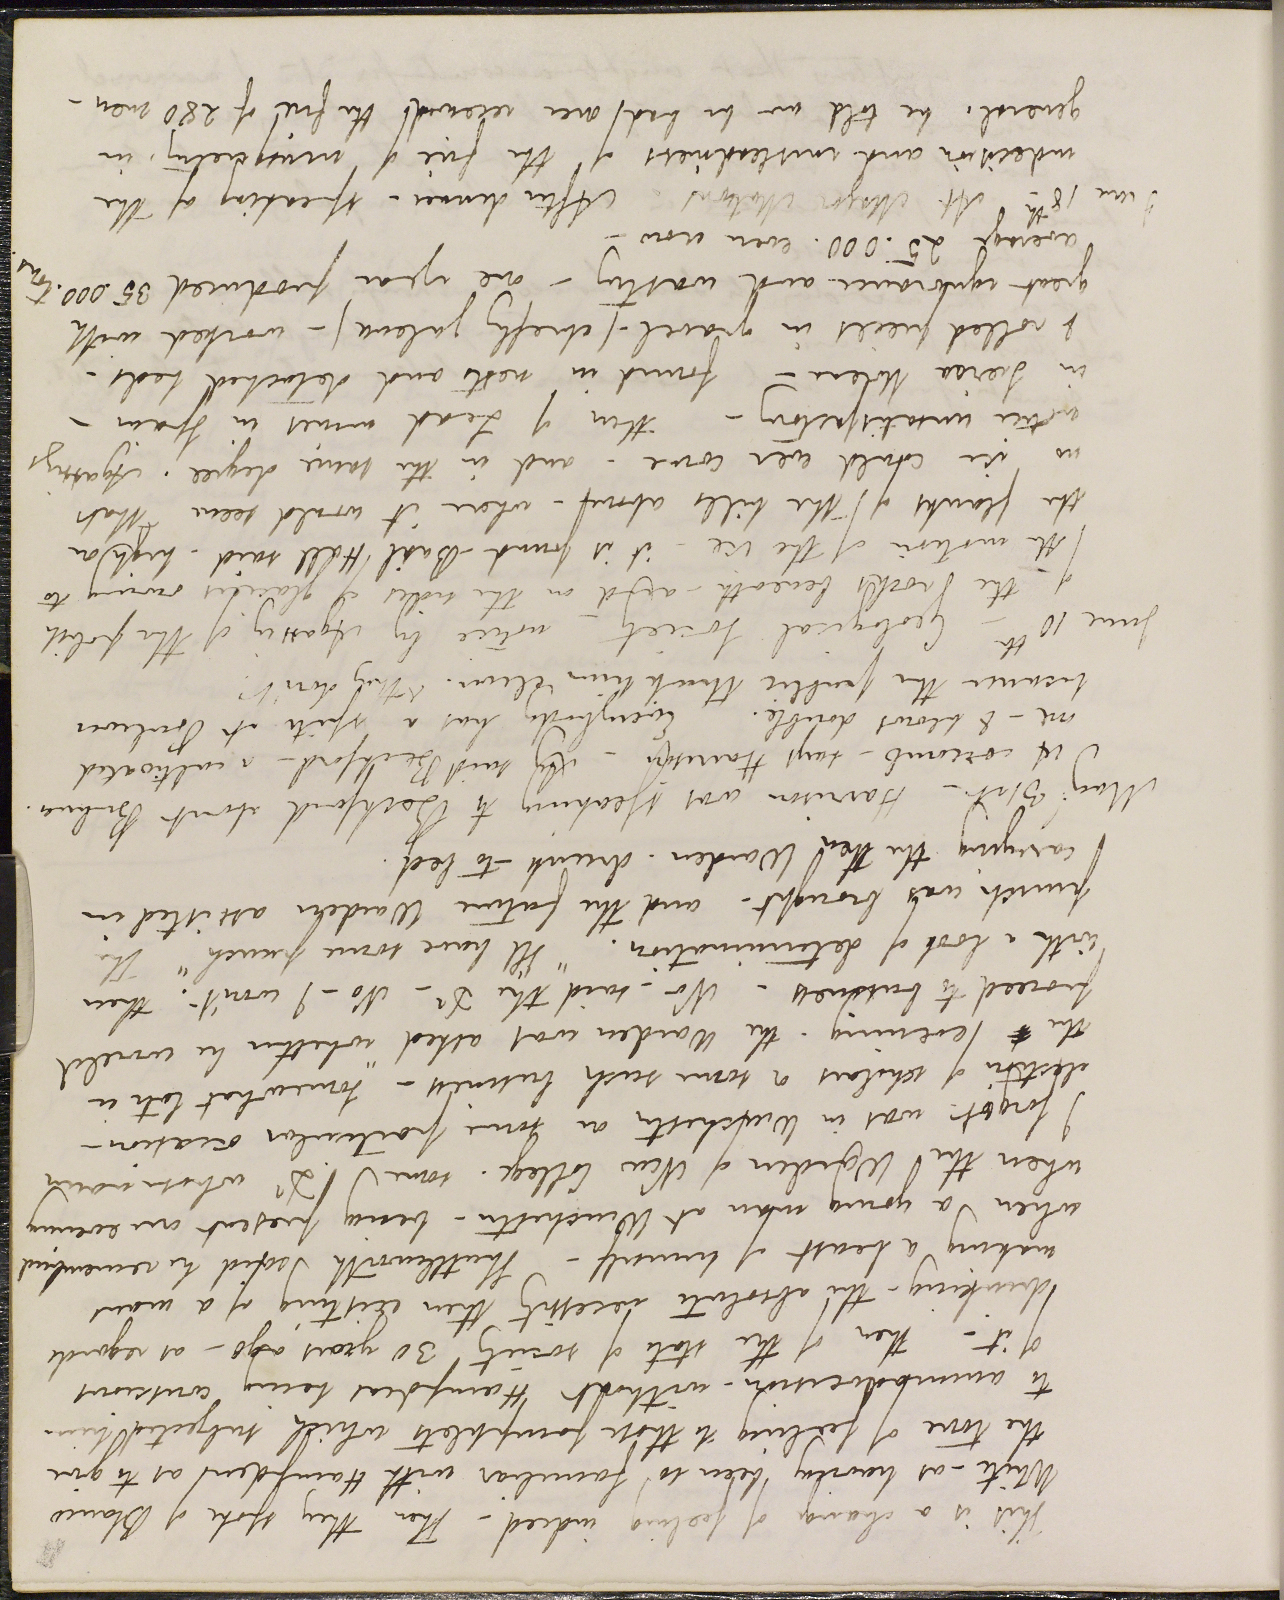 This is a change of feeling indeed - Then they spoke of Blanco
White - as having been so familiar with Hampden as to give
the tone of feeling to those pamphlets which subjected him
to animadversion - without Hampden being conscious
of it - then of the state of society 30 years ago - as regards
drinking - the absolute necessity then existing of a mans
making a beast of himself - Shuttleworth said he remembered
when a young man at Winchester - being present one evening
when the Warden of New College. some Dr whose name
I forget. was in Winchester on some particular occasion -
election of scholars or some such business - Somewhat late in
the evening - the Warden was asked "whether he would
proceed to business - No - said the Dr - No - I won't. then
with a look of determination. "I'll have some punch" The
punch was brought - and the future Warden assisted in
carrying the then Warden - drunk - to bed.
May 31st - Harrison was speaking to Beckford about Bulwer.
A coxcomb - says Harrison - Ay said Beckford - a cultivated
one - & blows double. Everybody has a spite at Bulwer
because the public think him clever. & they don't.
June 10th - Geological Society notice by Agassiz of the polish
of the rocks beneath - and on the sides of glaciers owing to
the motion of the ice - it is found - Basil Hall said - high on
the flanks of the hills above - where it would seem that
no ice could ever come - and in the same degree. Agassizs
notice unsatisfactory - then of Lead mines in Spain -
in Sierra Morena - found in nests and detached beds -
& rolled pieces in gravel - (chiefly galena) - worked with
great ignorance and wasting - one year produced 35.000. tons
average 25.000. even now -
June 18th - At Major After dinner - speaking of the
indecision and unsteadiness of the fire of musquetry. in
general. he told me he had once received the fire of 280 men -